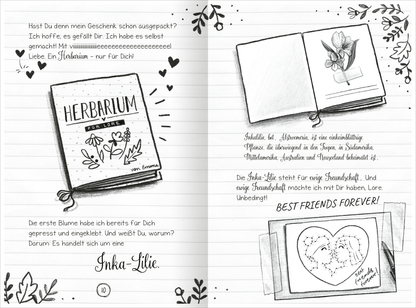 Hast Du denn mein Geschenk schon ausgepackt?
Ich hoffe, es gefällt Dir. Ich habe es selbst
gemacht! Mit viiiiiiiiiiiiiieeeeeeeeeeeeeeeeeeel
Liebe. Ein Herbarium – nur für Dich!
HERBARIUM
FÜR LORE
von Emma
Die erste Blume habe ich bereits für Dich
gepresst und eingeklebt. Und weißt Du, warum?
Darum: Es handelt sich um eine
Inka-Lilie.
10
Inkalilie, bot. Alstroemeria, ist eine einkeimblättrige
Pflanze, die überwiegend in den Tropen, in Südamerika,
Mittelamerika, Australien und Neuseeland beheimatet ist.
Die Inka-Lilie steht für ewige Freundschaft. Und
ewige Freundschaft möchte ich mit Dir haben, Lore.
Unbedingt!
BEST FRIENDS FOREVER!